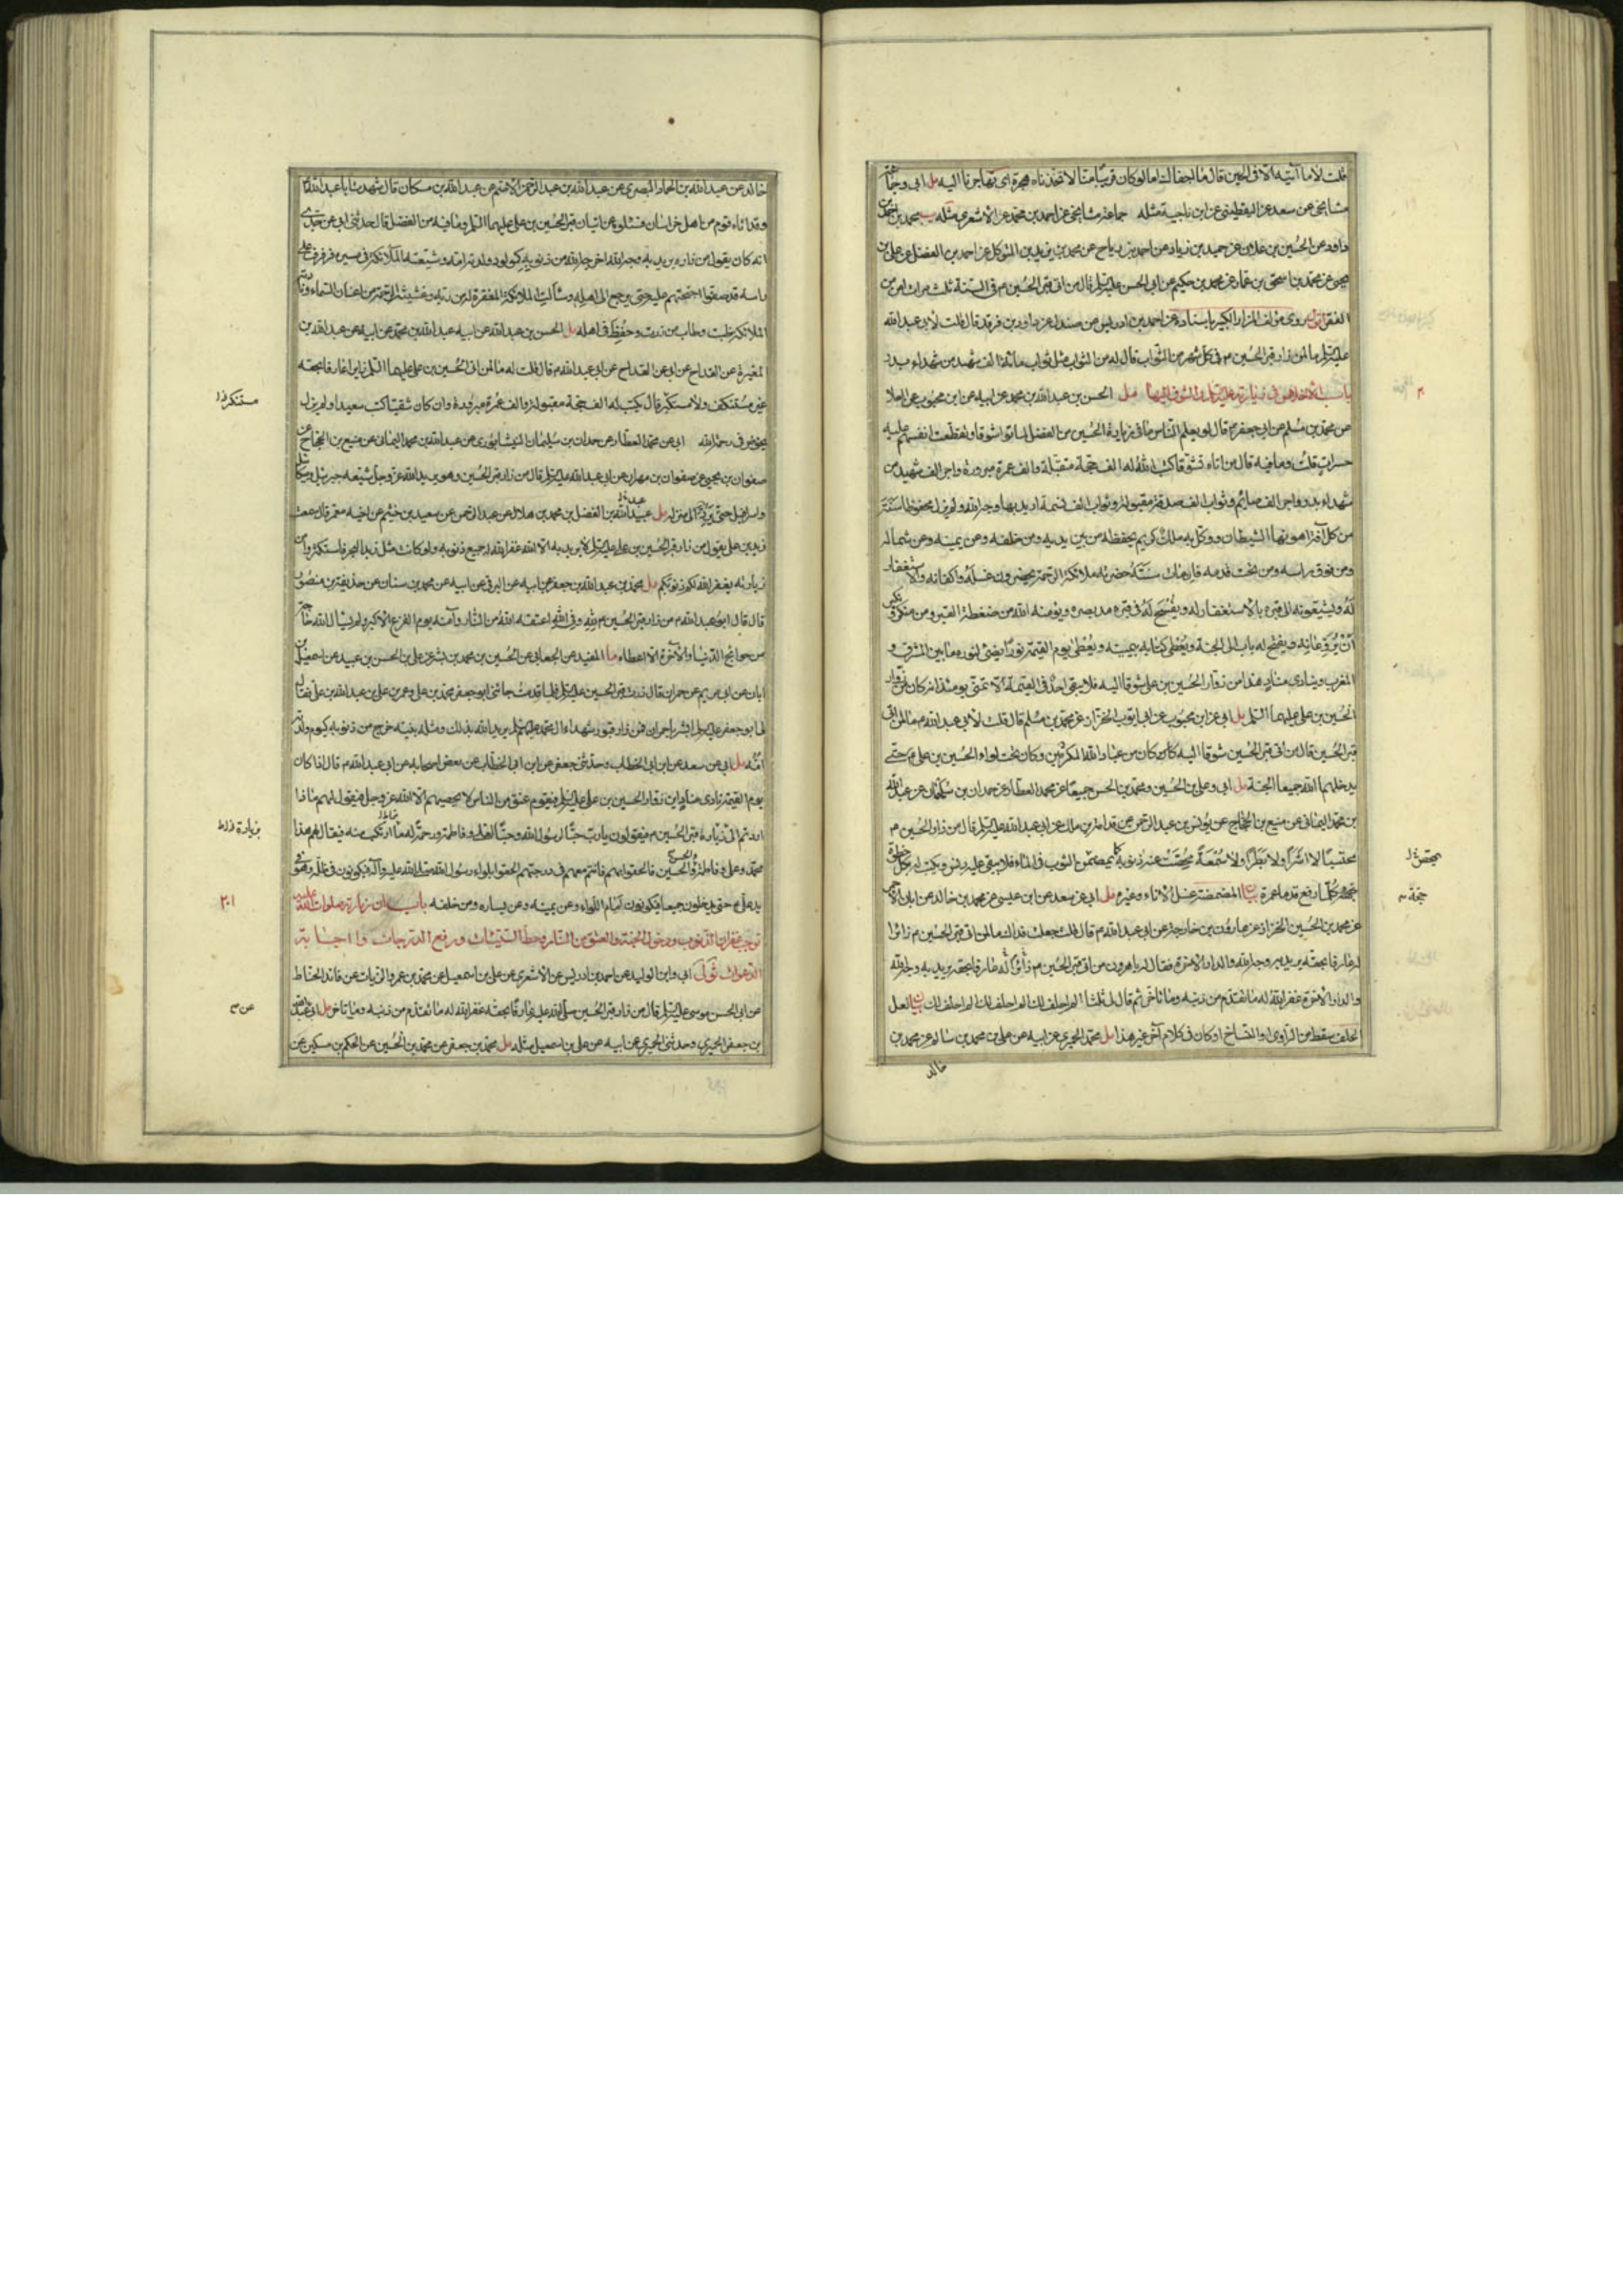 قلت لا ما آتيه الا في الحين قال ما اجفاك اما لو كان قريبا منا لاتخذناه هجرة اى تهاجرنا اليه مل ابى وجماعة
مشايخى عن سعد عن اليقطينى عن ابن ناجية مثله جماعة مشايخى عن احمد بن محمد عن الاشعرى مثله يب محمد بن احمد بن
داود عن الحسين بن على بن عن حميد بن زياد عن احمد بن رباح عن محمد بن يزيد بن المتوكل عن احمد بن الفضل عن على بن
يحيى عن محمد بن اسحق بن عمار عن محمد بن حكيم عن ابى الحسن عليه السلم قال من اتى قبر الحسين م فى السنة ثلث مرات امن من
الفقر روى مؤلف المزار الكبير باسناده عن احمد بن ادريس عن صندل عن داود بن فرقد قال قلت لابى عبد الله
عليه السلم ما لمن زار قبر الحسين م فى كل شهر من الثواب قال له من الثواب مثل ثواب مائة الف شهيد من شهداء بدر
باب الاخلاص فى زيارته عليه السلم والشوق اليها مل الحسن بن عبد الله بن محمد عن ابيه عن ابن محبوب عن العلا
عن محمد بن مسلم عن ابى جعفر م قال لو يعلم الناس ما فى زيارة الحسين من الفضل لماتوا شوقا وتقطعت انفسهم عليه
حسرات قلت وما فيه قال من اتاه تشوقا كتب الله له الف حجة متقبلة والف عمرة مبرورة واجر الف شهيد من
شهداء بدر واجر الف صائم وثواب الف صدقة مقبولة وثواب الف نسمة اريد بها وجه الله ولم يزل محفوظا سنته
من كل آفة اهونها الشيطان ووكل به ملك كريم يحفظه من بين يديه ومن خلفه وعن يمينه وعن شماله
ومن فوق راسه ومن تحت قدمه فان مات سنته حضرته ملائكة الرحمة يحضرون غسله واكفانه والاستغفار
له ويشيعونه الى قبره بالاستغفار له ويفسح له فى قبره مد بصره ويؤمنه الله من ضغطة القبر ومن منكر ونكير
ان يروعانه ويفتح له باب الى الجنة ويعطى كتابه بيمينه ويعطى يوم القيمة نورا يضئ لنوره ما بين المشرق و
المغرب وينادى مناد هذا من زوار الحسين بن على شوقا اليه فلا يبقى احد فى القيمة الا تمنى يومئذ انه كان من زوار
الحسين بن على عليهما السلم مل ابى عن ابن محبوب عن ابى ايوب الخزاز عن محمد بن مسلم قال قلت لابى عبد الله م ما لمن اتى
قبر الحسين قال من اتى قبر الحسين شوقا اليه كان من عباد الله المكرمين وكان تحت لواء الحسين بن على م حتى
يدخلهم الله جميعا الجنة مل ابى وعلى بن الحسين ومحمد بن الحسن جميعا عن محمد العطار عن حمدان بن سليمان عن عبد الله
بن محمد اليمانى عن منيع بن الحجاج عن يونس بن عبد الرحمن عن قدامة بن مالك عن ابى عبد الله عليه السلم قال من زار الحسين م
محتسبا لا اشرا ولا بطرا ولا سمعة محصت عنه ذنوبه كما يمصمض الثوب فى الماء فلا يبقى عليه دنس ويكتب له بكل خطوة
حجة وكلما رفع قدما عمرة بيان المضمضة غسل الاناء وغيره مل ابى عن سعد عن ابن عيسى عن محمد بن خالد عن ابان الاحمر
عن محمد بن الحسين الخزاز عن هارون بن خارجة عن ابى عبد الله م قال قلت جعلت فداك ما لمن اتى قبر الحسين م زائرا
له عارفا بحقه يريد به وجه الله والدار الاخرة فقال له يا هرون من اتى قبر الحسين م زائرا له عارفا بحقه يريد به وجه الله
والدار الاخرة غفر الله له ما تقدم من ذنبه وما تاخر ثم قال لى ثلثا الم احلف لك الم احلف لك الم احلف لك بيان لعل
الحلف سقط من الراوى او النساخ او كان فى كلام آخر غير هذا مل محمد الحميرى عن ابيه عن على بن محمد بن سالم عن محمد بن
خالد
خالد عن عبد الله بن حماد البصرى عن عبد الله بن عبد الرحمن الاصم عن عبد الله بن مسكان قال شهدت ابا عبد الله م
وقد اتاه قوم من اهل خراسان فسئلوه عن اتيان قبر الحسين بن على عليهما السلم وما فيه من الفضل قال حدثنى ابى عن جدى
انه كان يقول من زاره يريد به وجه الله اخرجه الله من ذنوبه كمولود ولدته امه وشيعته الملائكة فى مسيره فرفرفت على
راسه قد صفوا اجنحتهم عليه حتى يرجع الى اهله وسألت الملائكة المغفرة له من ربه وغشيته الرحمة من اعنان السماء ونادته
الملائكة طبت وطاب من زرت وحفظ فى اهله مل الحسن بن عبد الله عن ابيه عبد الله بن محمد عن ابيه عن عبد الله بن
المغيرة عن القداح عن ابى عبد الله م قال قلت له ما لمن اتى الحسين بن على عليهما السلم زايرا عارفا بحقه
غير مستنكف ولا مستكبر قال يكتب له الف حجة مقبولة والف عمرة مبرورة وان كان شقيا كتب سعيدا ولم يزل
يخوض فى رحمة الله ابى عن محمد العطار عن حمدان بن سليمان النيشابورى عن عبد الله بن محمد اليمانى عن منيع بن الحجاج عن
صفوان بن يحيى عن صفوان بن مهران عن ابى عبد الله عليه السلم قال من زار قبر الحسين وهو يريد الله عز وجل شيعه جبرئيل وميكائيل
واسرافيل حتى يرد الى منزله مل عبيد الله بن الفضل بن محمد بن هلال عن عبد الرحمن عن سعيد بن خيثم عن اخيه معمر قال سمعت
زيد بن على يقول من زار قبر الحسين بن على عليه السلم لا يريد به الا الله غفر الله له جميع ذنوبه ولو كانت مثل زبد البحر فاستكثروا من
زيارته يغفر الله لكم ذنوبكم مل محمد بن عبد الله بن جعفر عن ابيه عن البرقى عن ابيه عن محمد بن سنان عن حذيفة بن منصور
قال قال ابو عبد الله م من زار قبر الحسين م لله وفى الله اعتقه الله من النار وآمنه يوم الفزع الاكبر ولم يسال الله حاجة
من حوائج الدنيا والاخرة الا اعطاه ما المفيد عن الجعابى عن الحسين بن محمد بن بشر عن على بن الحسن بن عبيد عن اسمعيل بن
ابان عن ابى مريم عن حمران قال زرت قبر الحسين عليه السلم فلما قدمت جائنى ابو جعفر محمد بن على وعمر بن على بن عبد الله بن على فقال
لى ابو جعفر عليه السلم ابشر يا حمران فمن زار قبور شهداء آل محمد عليهم السلم يريد الله بذلك وصلة نبيه خرج من ذنوبه كيوم ولدته
امه مل ابى عن سعد عن ابن ابى الخطاب وحدثنى جعفر عن ابن ابى الخطاب عن بعض اصحابه عن ابى عبد الله م قال اذا كان
يوم القيمة نادى مناد اين زوار الحسين بن على عليه السلم فيقوم عنق من الناس لا يحصيهم الا الله عز وجل فيقول لهم ماذا
اردتم الى زيارة قبر الحسين م فيقولون يا رب حبا لرسول الله وحبا لعلى وفاطمة ورحمة له مما ارتكب منه فيقال لهم هذا
محمد وعلى وفاطمة والحسن والحسين فالحقوا بهم فانتم معهم فى درجتهم الحقوا بلواء رسول الله صلى الله عليه وآله فيكونون فى ظله وهو فى
يد على م حتى يدخلون جميعا فيكونون امام اللواء وعن يمينه وعن يساره ومن خلفه باب ان زيارته صلوات الله عليه
توجب غفران الذنوب ودخول الجنة والعتق من النار وحط السيئات ورفع الدرجات واجابة
الدعوات ابى وابن الوليد عن احمد بن ادريس عن الاشعرى عن على بن اسمعيل عن محمد بن عمرو الزيات عن قائد الحناط
عن ابى الحسن موسى عليه السلم قال من زار قبر الحسين صلى الله عليه عارفا بحقه غفر الله له ما تقدم من ذنبه وما تاخر مل
بن جعفر الحميرى وحدثنى الحميرى عن ابيه عن على بن اسمعيل مثله مل محمد بن جعفر عن محمد بن الحسين عن الحكم بن مسكين عن
٢٠١
عن م